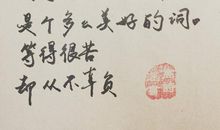 是个多么美好的词。
等得很苦
却从不辜负